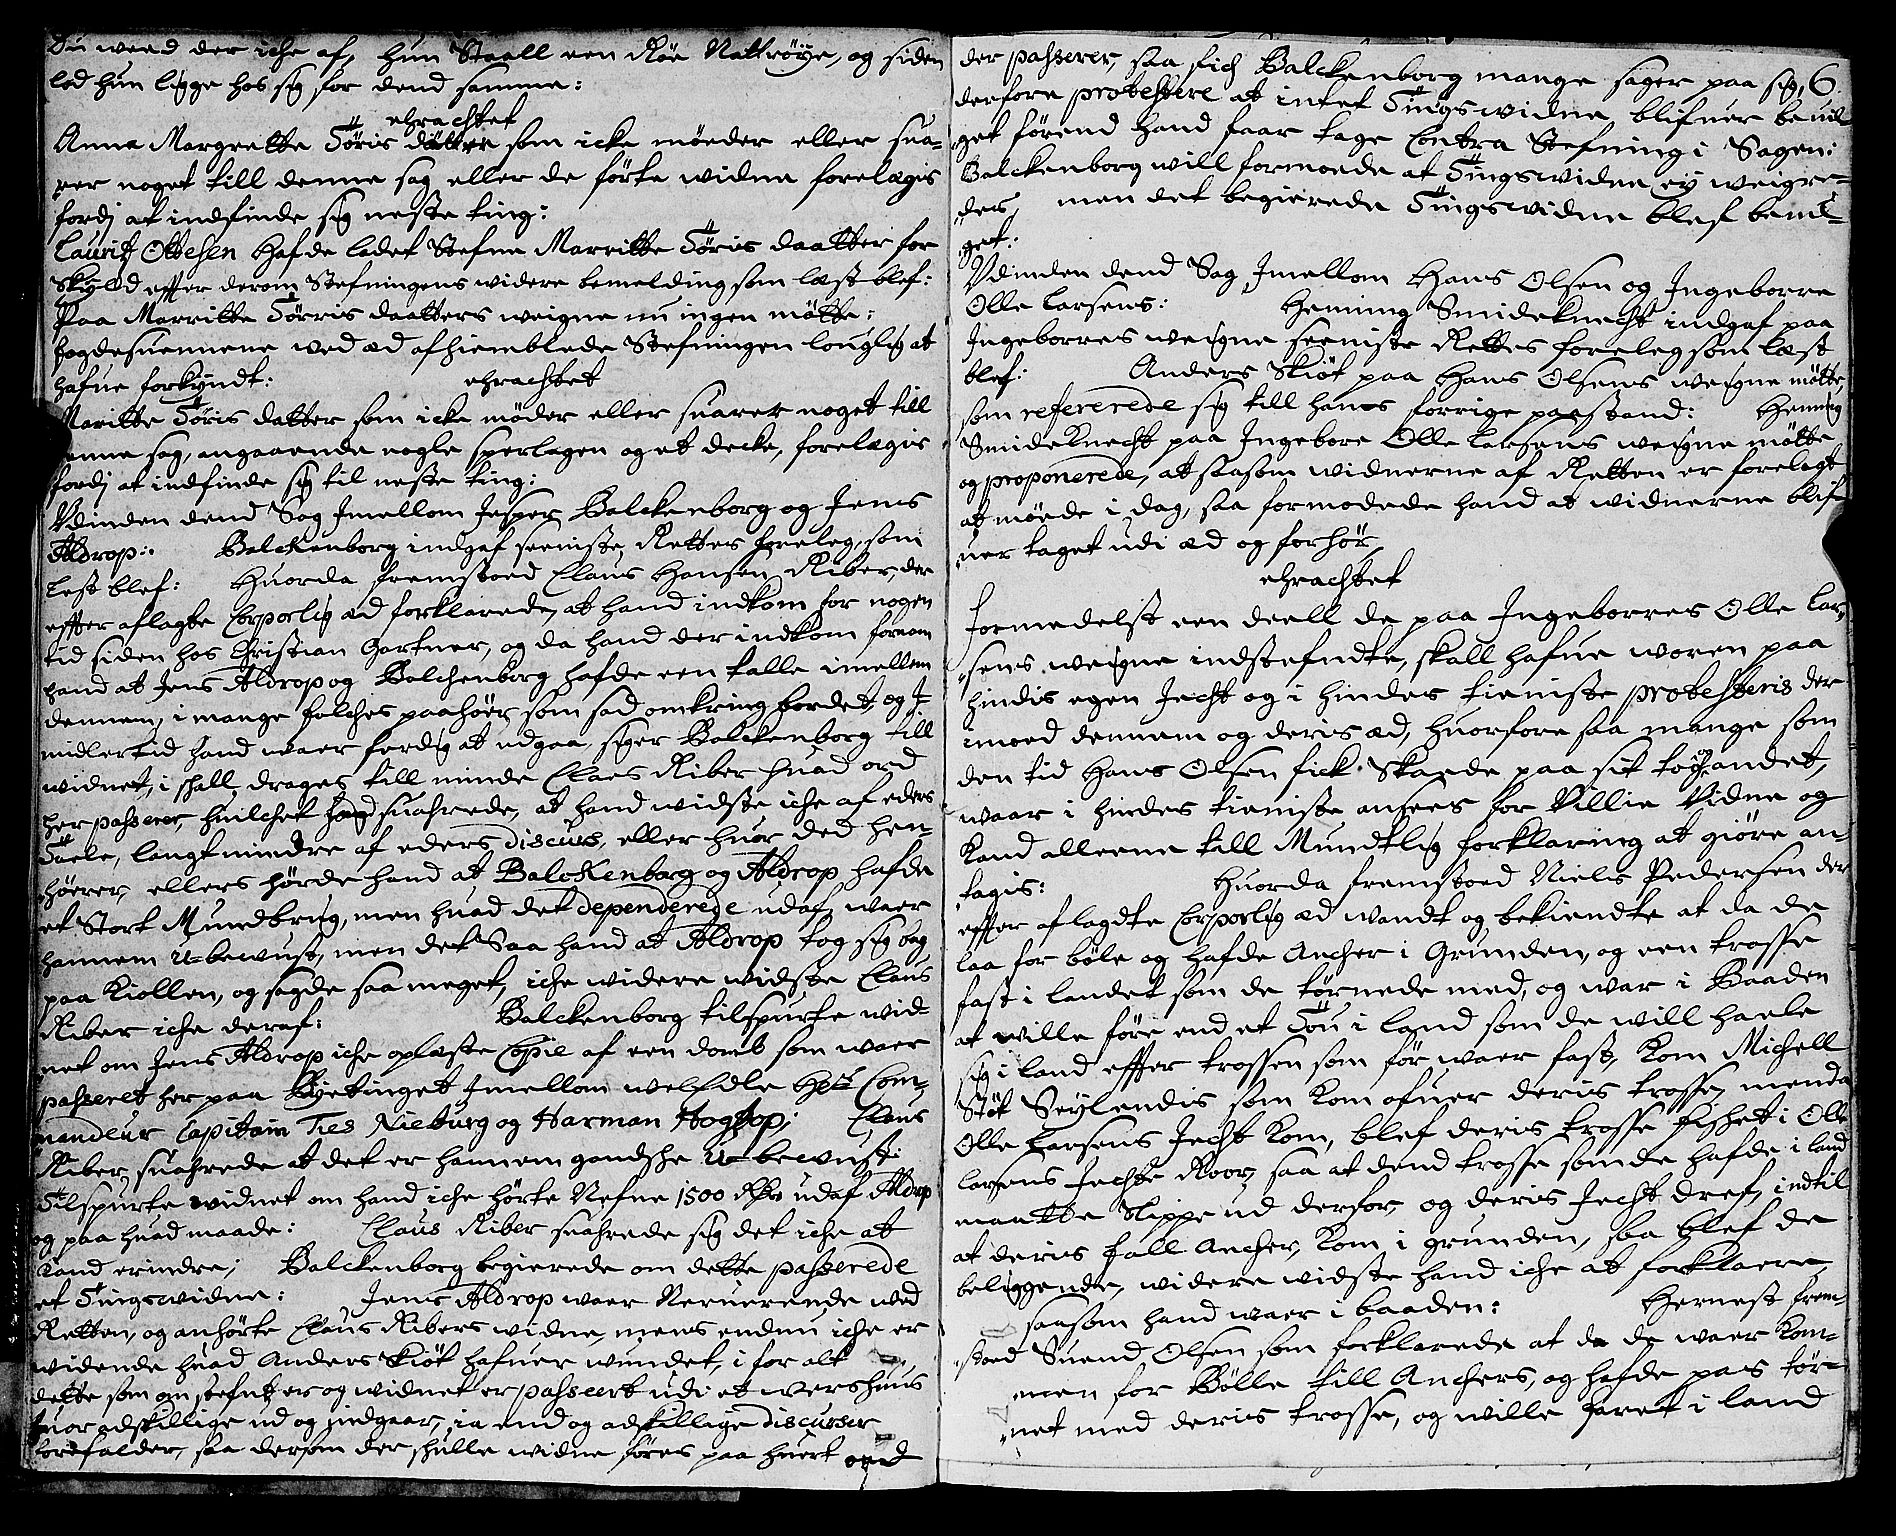 Du weed der iche af, hun Staall een Röe Nattröye, og siden
lod hun ligge hos sig for dend samme:
ehrachtet
Anna Margrette Töris datter som icke möeder eller sua-
rer noget till denne sag eller de förte widne forelægis
fordj at indfinde sig neste ting:
Lauritz Ottesen hafde ladet Stefne Marritte Töris daatter for
skyld effter derom Stefningens widere bemelding som læst blef:
Paa Marritte Törris daatters weigne nu ingen mötte:
fogdesuennene wed æd afhiemblede Stefningen louglig at
hafue forkyndt: ehrachtet
Maritte Töris datter som icke möder eller suarer noget till
denne sag, angaaende nogle sperlagen og et decke, forelægis
fordj at indfinde sig til neste ting:
Udinden dend Sag Imellom Jesper Balckenborg og Jens
Aldrop: Balckenborg indgaf seeniste Rettes foreleg, som
lest blef: Huorda fremstoed Claus Hansen Riber, der
effter aflagte Corporlig æd forklarede, at hand indkom for nogen
tid siden hos Christian Gartner, og da hand der indkom fornam
hand at Jens Aldrop og Balchenborg hafde een talle imellem
dennem, i mange folches paahöer som sad omkring bordet, og I-
midlertid hand waer ferdig at udgaa, siger Balckenborg till
widnet, i shall drages till minde Claes Riber huad ord
her passerer, huilchet hand suahrede, at hand widste iche af eders
Taele, langt mindre af eders discurs, eller huor ded hen-
höerer, ellers hörde hand at Balckenborg og Aldrop hafde
et Stort Mundbrug, men huad det dependerede udaf, waer
hannem u-bewust, men det Saa hand at Aldrop tog sig bag
paa Kiollen, og sagde saa meget, iche widere widste Claus
Riber iche deraf: Balckenborg tilspurte wid-
net om Jens Aldrop iche oplæste Copie af een domb som waer
passeret her paa Byetinget Imellom welEdle Hr Com-
mandeur Capitain Ties Nieburg og Harman Hogstop; Claus
Riber suahrede at det er hannem gandshe u-bewust:
Tilspurte widnet om hand iche hörte Nefne 1500 Rdr udaf Aldrop
og paa huad maade: Claus Riber suahrede sig det iche at
kand erindre; Balckenborg begierede om dette passerede
et Tingswidne: Jens Aldrop waer Neruerende wed
Retten, og anhörte Claus Ribers widne, mens endnu iche er
widende huad Anders Skiöt hafuer wundet, i for alt
dette som om stefnt er og widnet er passeert udi et wershuus
huor adskillige ud og indgaar, ia end og adskillige discurser
forefalder, saa dersom der shulle widne föres paa huert ord
der passerer, saa fich Balckenborg mange sager paa sig, 6
derfore protestere at intet Tingswidne blifuer beuil-
get förend hand faar tage Contra Stefning i Sagen:
Balckenborg will formoede at Tingswidne ey weigre-
des, men det begierede Tingswidne blef bevil-
get:
Udinden dend Sag Imellom Hans Olsen og Ingeborre
Olle Larsens: Henning Smideknecht indgaf paa
Ingeborres weigne seeniste Rettes foreleg som læst
blef: Anders Skiöt paa Hans Olsens weigne mötte,
som refererede sig till hans forrige paastand: Henning
Smideknecht paa Ingebore Olle Larsens weigne mötte
og proponerede, at saasom widnerne af Retten er forelagt
at möede i dag, saa formodede hand at widnerne blif-
uer taget udi æd og forhör,
ehrachtet
Formedelst een deell de paa Ingeborres Olle Lar-
sens weigne indstefndte, skall hafue woren paa
hindis egen Jecht og i hindes tieniste protesteris der
imoed dennem og deris æd, huorfore saa mange som
den tid Hans Olsen fick Skade paa sit tog og andet,
waar i hindes tieniste ansees for Villie Vidne og
Kand alleene till Mundtlig forklaring at giöre an-
tagis: Huorda fremstoed Niels Pedersen der
effter aflagdte Corporlig æd wandt og bekiendte at da de
laa for böle og hafde Ancher i Grunden, og een trosse
fast i landet som de törnede med, og war i Baaden
at wille före end et Töu i land som de will haele
sig i land effter trossen som för waer fast, kom Michell
Stöt Seylendis som kom ofuer deris trosse, menda
Olle Larsens Jecht kom, blef deris trosse fishet i Olle
Larsens Jechte Roor, saa at dend trosse som de hafde i land
maatte Slippe ud derfor, og deris Jecht dref, indtil
at deris fall Ancher kom i grunden, saa blef de
beliggende, widere widste hand iche at forklaere,
saasom hand waer i baaden: Hernest frem-
stoed Suend Olsen som forklarede at da de waer kom-
men for Bölle till Anchers, og hafde paa tör-
net med deris trosse, og wille faret i land